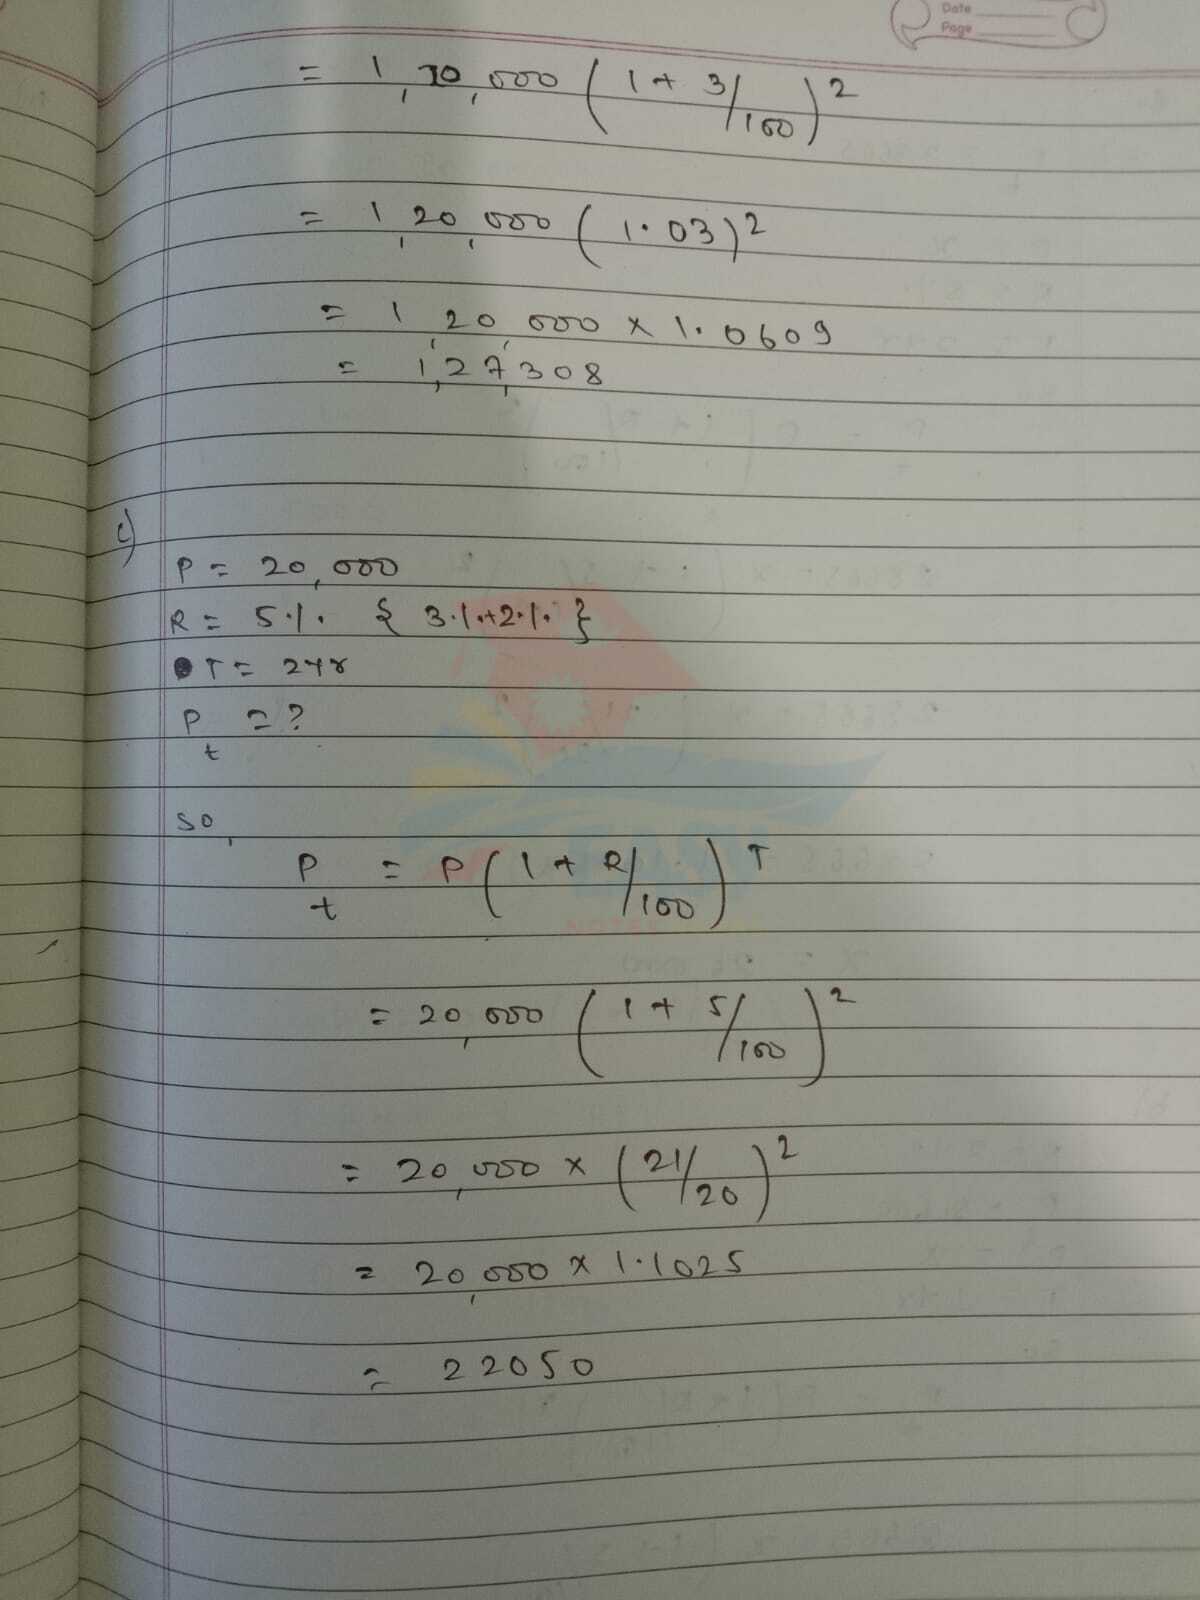 Date
Page
= 1,20,000 ( 1 + 3/100 )²
= 1,20,000 ( 1.03 )²
= 1,20,000 × 1.0609
= 1,27,308
c)
P = 20,000
R = 5% { 3%+2% }
T = 2yr
Pt = ?
so,
Pt = P ( 1 + R/100 )ᵀ
= 20,000 ( 1 + 5/100 )²
= 20,000 × ( 21/20 )²
= 20,000 × 1.1025
= 22050